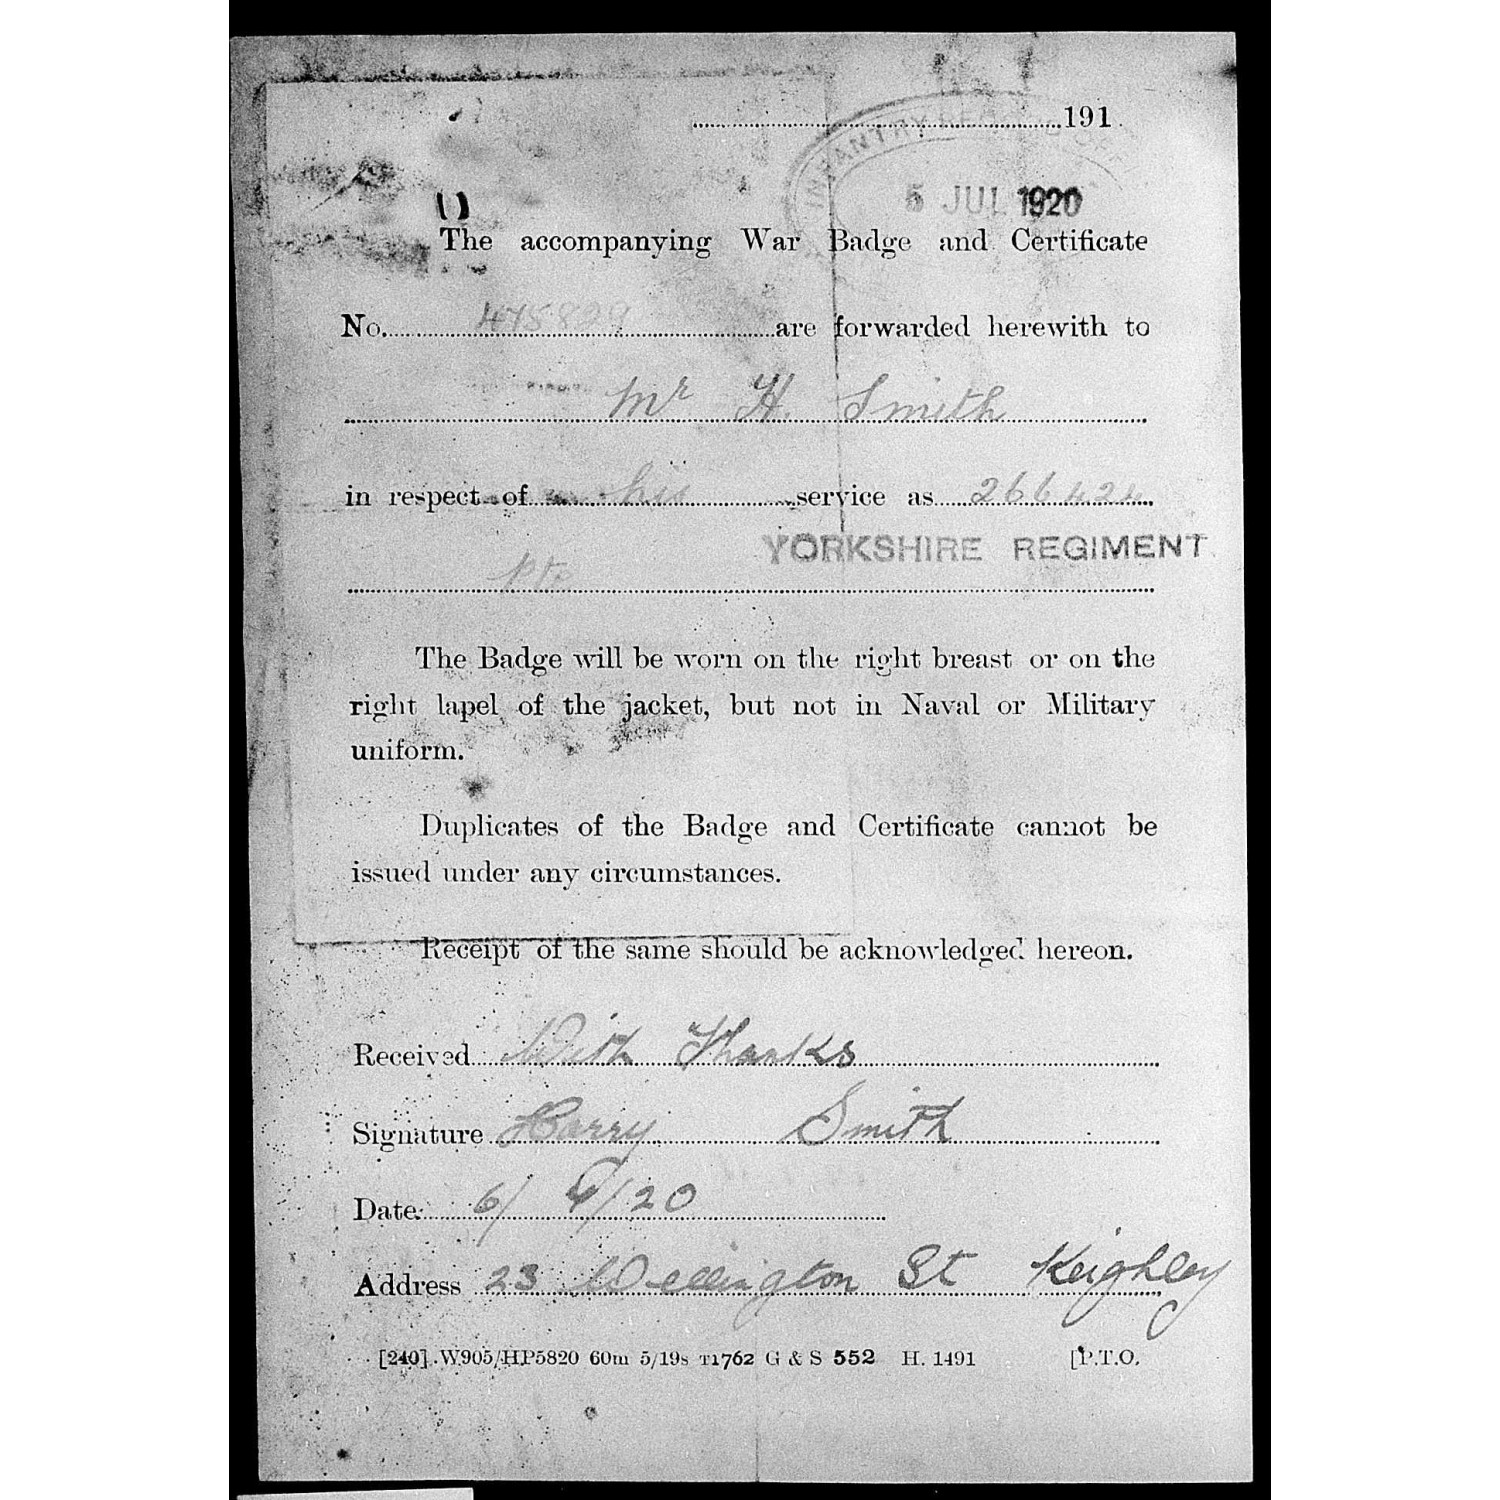 191
INFANTRY RECORD OFF
5 JUL 1920
The accompanying War Badge and Certificate
No. 475829 are forwarded herewith to
Mr H. Smith
in respect of his service as 266424
YORKSHIRE REGIMENT
pte
The Badge will be worn on the right breast or on the
right lapel of the jacket, but not in Naval or Military
uniform.
Duplicates of the Badge and Certificate cannot be
issued under any circumstances.
Receipt of the same should be acknowledged hereon.
Received With Thanks
Signature Harry Smith
Date 6/ /20
Address 23 Wellington St Keighley
[240] .W.905/HP5820 60m 5/19s T1762 G & S 552 H. 1491 [P.T.O.